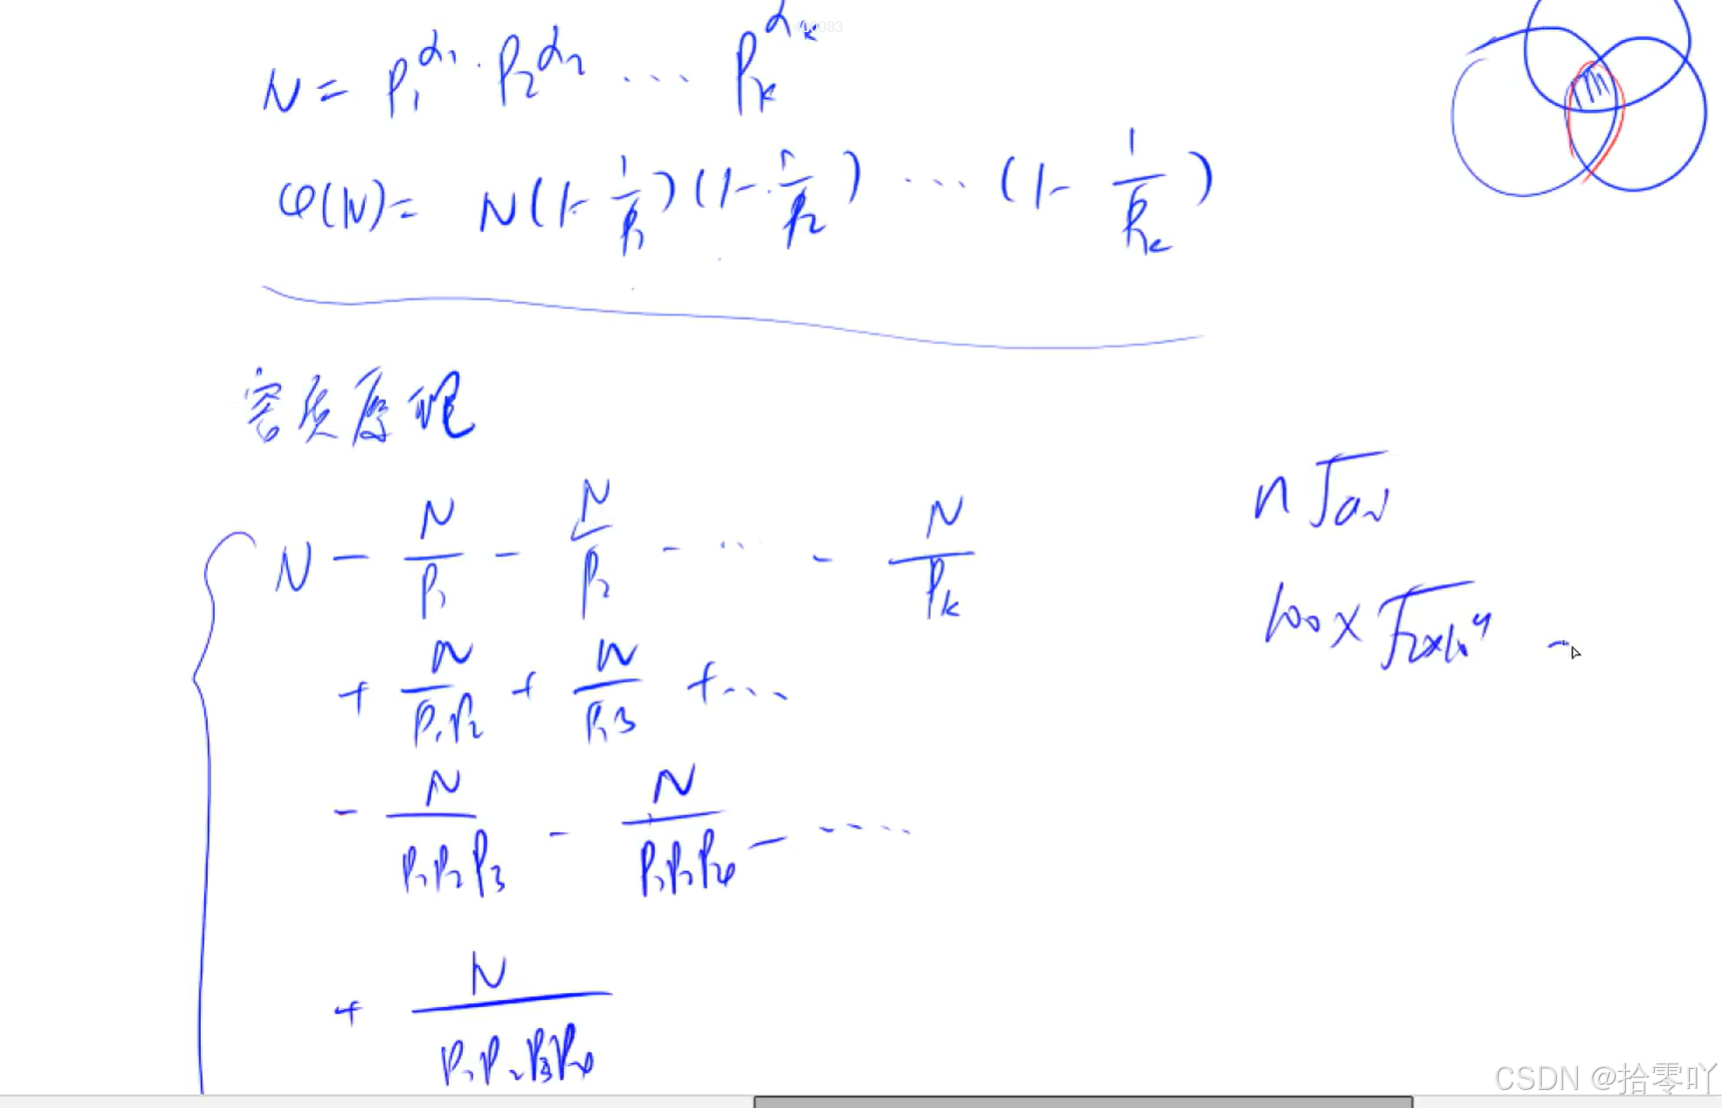 N = P₁^α₁ · P₂^α₂ ... Pₖ^αₖ
φ(N) = N(1 - 1/P₁)(1 - 1/P₂) ... (1 - 1/Pₖ)
容斥原理
N - N/P₁ - N/P₂ - ... - N/Pₖ
+ N/P₁P₂ + N/P₁P₃ + ...
- N/P₁P₂P₃ - N/P₁P₂P₄ - ....
+ N/P₁P₂P₃P₄
n√aᵢ
100 × √2×10⁹
CSDN @拾零吖